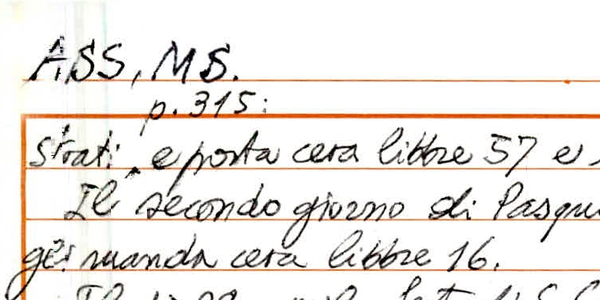 ASS, MS.
p. 315:
strati, e porta cera libbre 57 e
Il secondo giorno di Pasqu
ger manda cera libbre 16.
Il